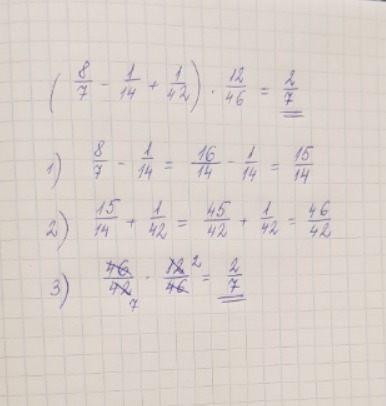 (8/7 - 1/14 + 1/42) · 12/46 = 2/7
1) 8/7 - 1/14 = 16/14 - 1/14 = 15/14
2) 15/14 + 1/42 = 45/42 + 1/42 = 46/42
3) 46/42 7 · 12 2/46 = 2/7